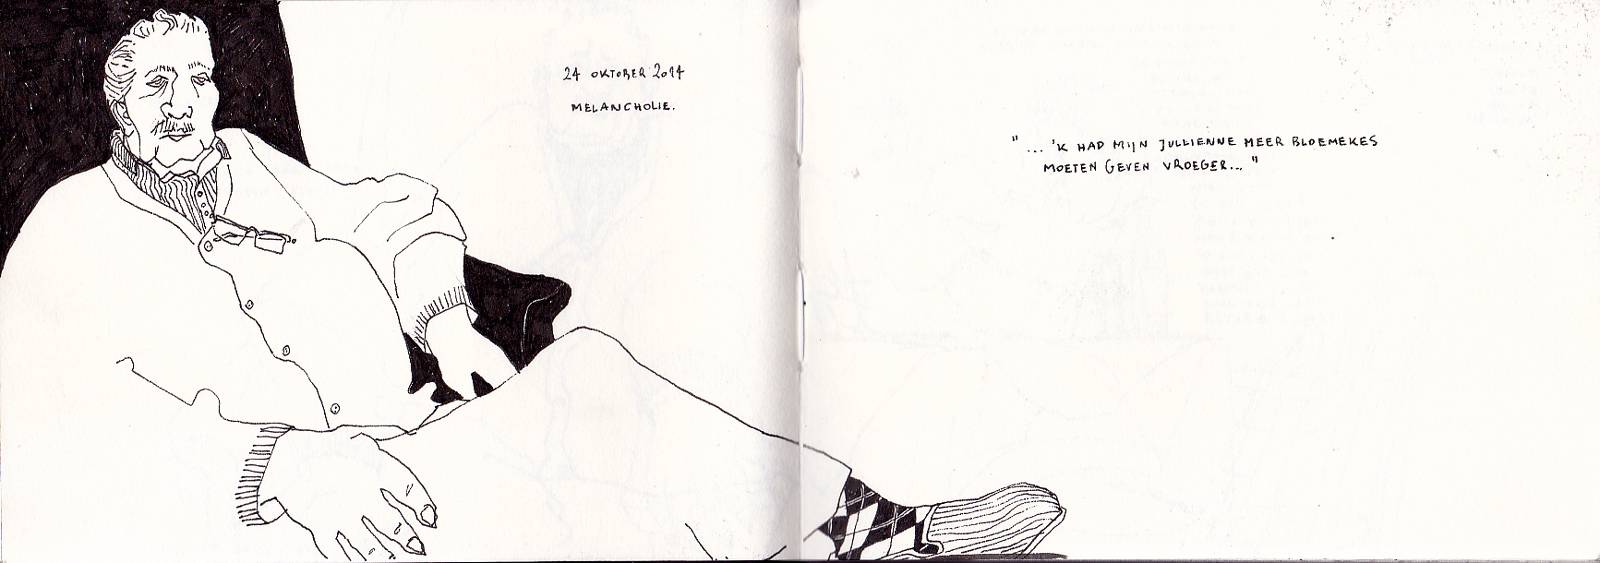 24 OKTOBER 2014
MELANCHOLIE.
"... 'K HAD MIJN JULLIENNE MEER BLOEMEKES
MOETEN GEVEN VROEGER... "